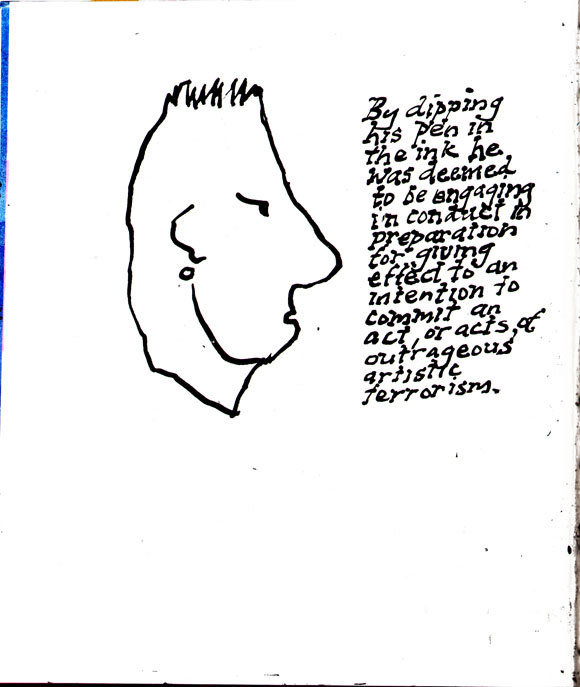 By dipping
his pen in
the ink he
was deemed
to be engaging
in conduct in
preparation
for giving
effect to an
intention to
commit an
act, or acts, of
outrageous
artistic
terrorism.